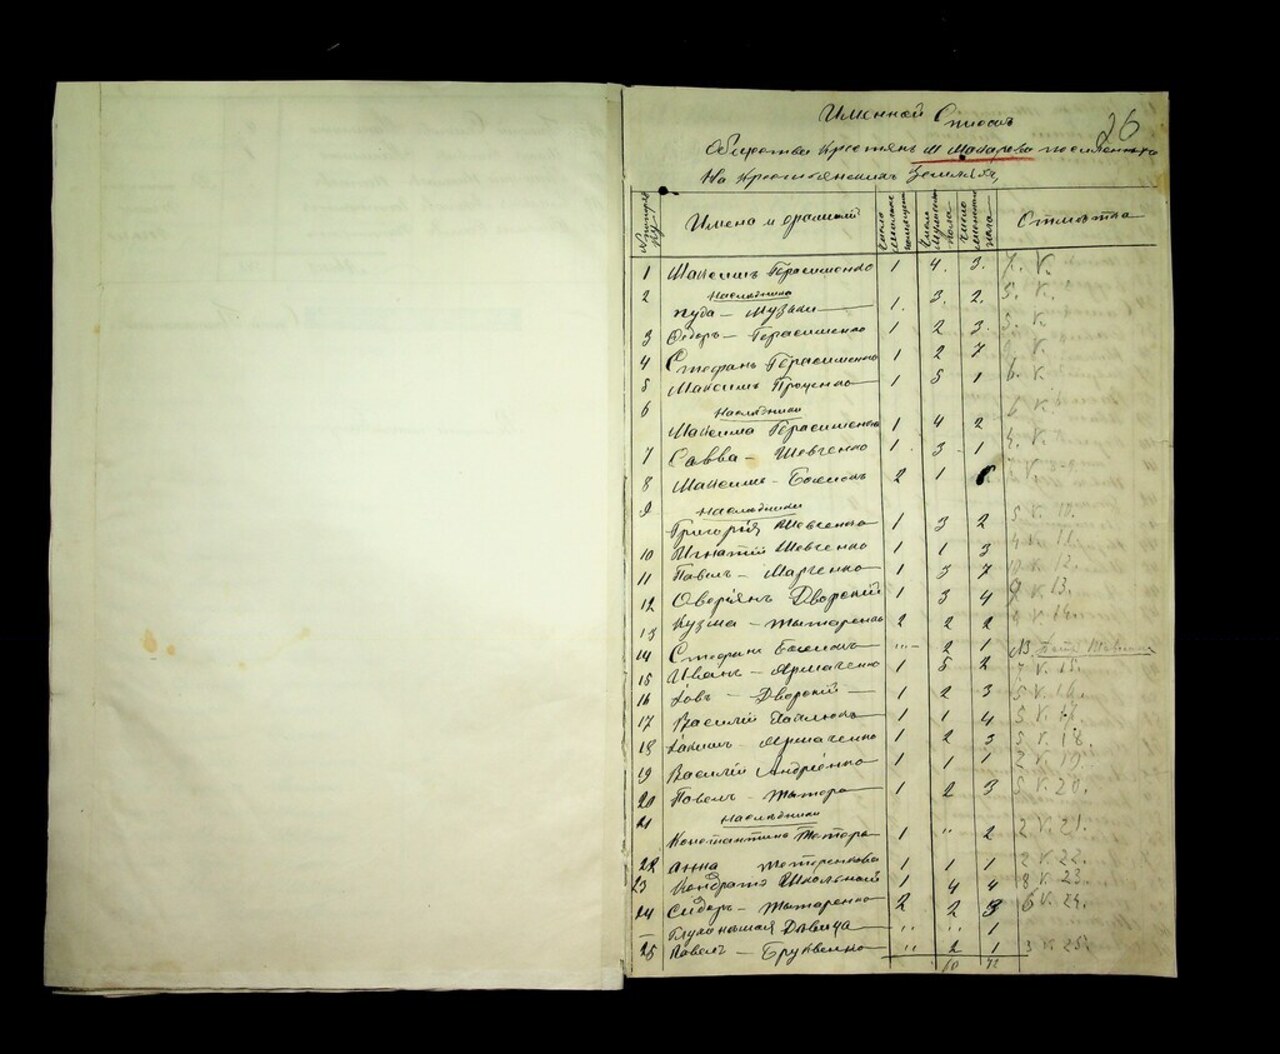 Именной Списокъ
26
Общества Крестьянъ М. Макарова поселенныхъ
На Крестьянскихъ Земляхъ,
Имена и фамилии
Число
Число мужеска пола
Число женска пола
Отмѣтка
1 Максимъ Герасименко 1 4. 3. 7. V.
2 Наслѣдники
Іуда – Музыки 1. 3. 2. 5. V.
3 Ѳедоръ – Герасименко 1 2 3. 5. V.
4 Стефанъ Герасименко 1 2 7 V.
5 Максимъ Проценко 1 5 1 6. V.
6 Наслѣдники
Максима Герасименко 1 4 2 6 V.
7 Савва – Шевченко 1 3 1 4. V.
8 Максимъ – 2 1 V.
9 Наслѣдники
Григорія Шевченко 1 3 2 5 V. 10.
10 Игнатій Шевченко 1 1 3 4 V. 11.
11 Павелъ – Марченко 1 3 7 10 V. 12.
12 Оверіянъ Дворскій 1 3 4 V. 13.
13 Кузма – Тытаренко 2 2 2 4 V. 14.
14 Стефанъ 2 1
15 Иванъ – Ярмаченко 1 5 2 7 V. 15.
16 Іовъ – Дворскій 1 2 3 5 V. 16.
17 Василій 1 1 4 5 V. 17.
18 Іакимъ – Ярмаченко 1 2 3 5 V. 18.
19 Василій Андріенко 1 1 1 2 V. 19.
20 Павелъ – Тытаря 1 2 3 5 V. 20.
21 Наслѣдники
Константина Тетеря 1 " 2 2 V. 21.
22 Анна 1 1 1 2 V. 22.
23 Кондратъ Школьный 1 4 4 8 V. 23.
24 Сидоръ – Тытаренко 2 2 3 6 V. 24.
– Глухонѣмая Дѣвица " " 1
25 Павелъ – Бруквенко " 2 1 3 V. 25.
60 72